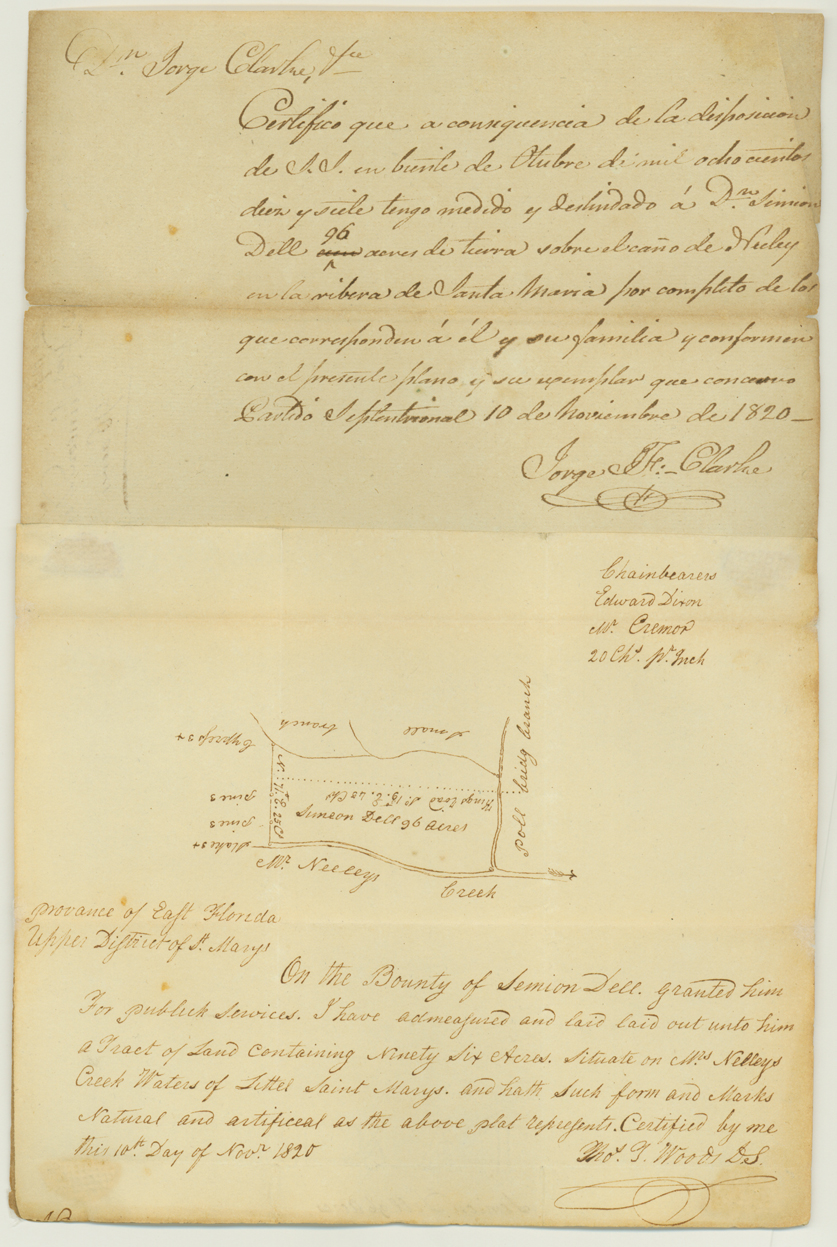 Dn. Jorge Clarke, &ce
Certifico que a consiquencia de la disposicion
de S.S. en biente de Otubre de mil ochocientos
diez y siete tengo medido y deslindado á Dn. Simion
96
Dell acres de tierra sobre el caño de Neeley
en la ribera de Santa Maria por completo de los
que corresponden á él y su familia y conformen
con el presente plano y su exemplar que concervo
Partido Septentrional 10 de Noviembre de 1820 —
Jorge J. F. Clarke
Chainbearers
Edward Dixon
Mr. Cremor
20 Chs. pr. Inch
Poll bridg branch
Small
branch
Cypress st
pines
pines
Stake st
N. 71° E. 25 Ch
Kings road
Simeon Dell 96 Acres
Mrs. Nelleys
Creek
provance of East Florida
Upper District of St. Marys
On the Bounty of Semion Dell. granted him
For publick Services. I have admeasured and laid laid out unto him
a Tract of Land Containing Ninety Six Acres. Situate on Mrs Nelleys
Creek Waters of Littel Saint Marys. and hath Such form and Marks
Natural and artificeal as the above plat represents. Certified by me
this 10th. Day of Novr. 1820
Thos. T. Woods D.S.